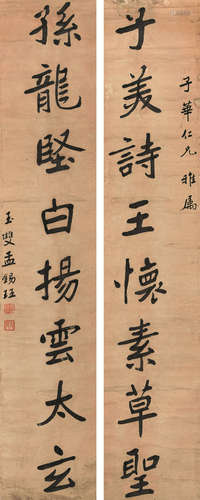 子華仁兄雅屬
子美詩王懷素草聖
孫龍堅白揚雲太玄
玉雙孟錫珏